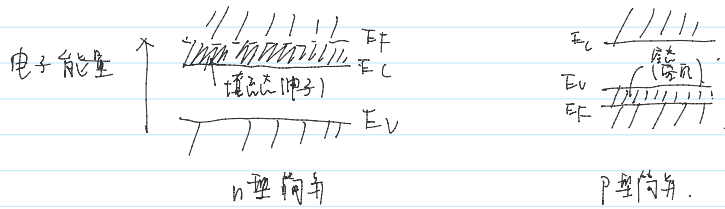 电子能量
EF
EC
填充态(电子)
EV
n型简并
EC
空态
(空穴)
EV
EF
P型简并.